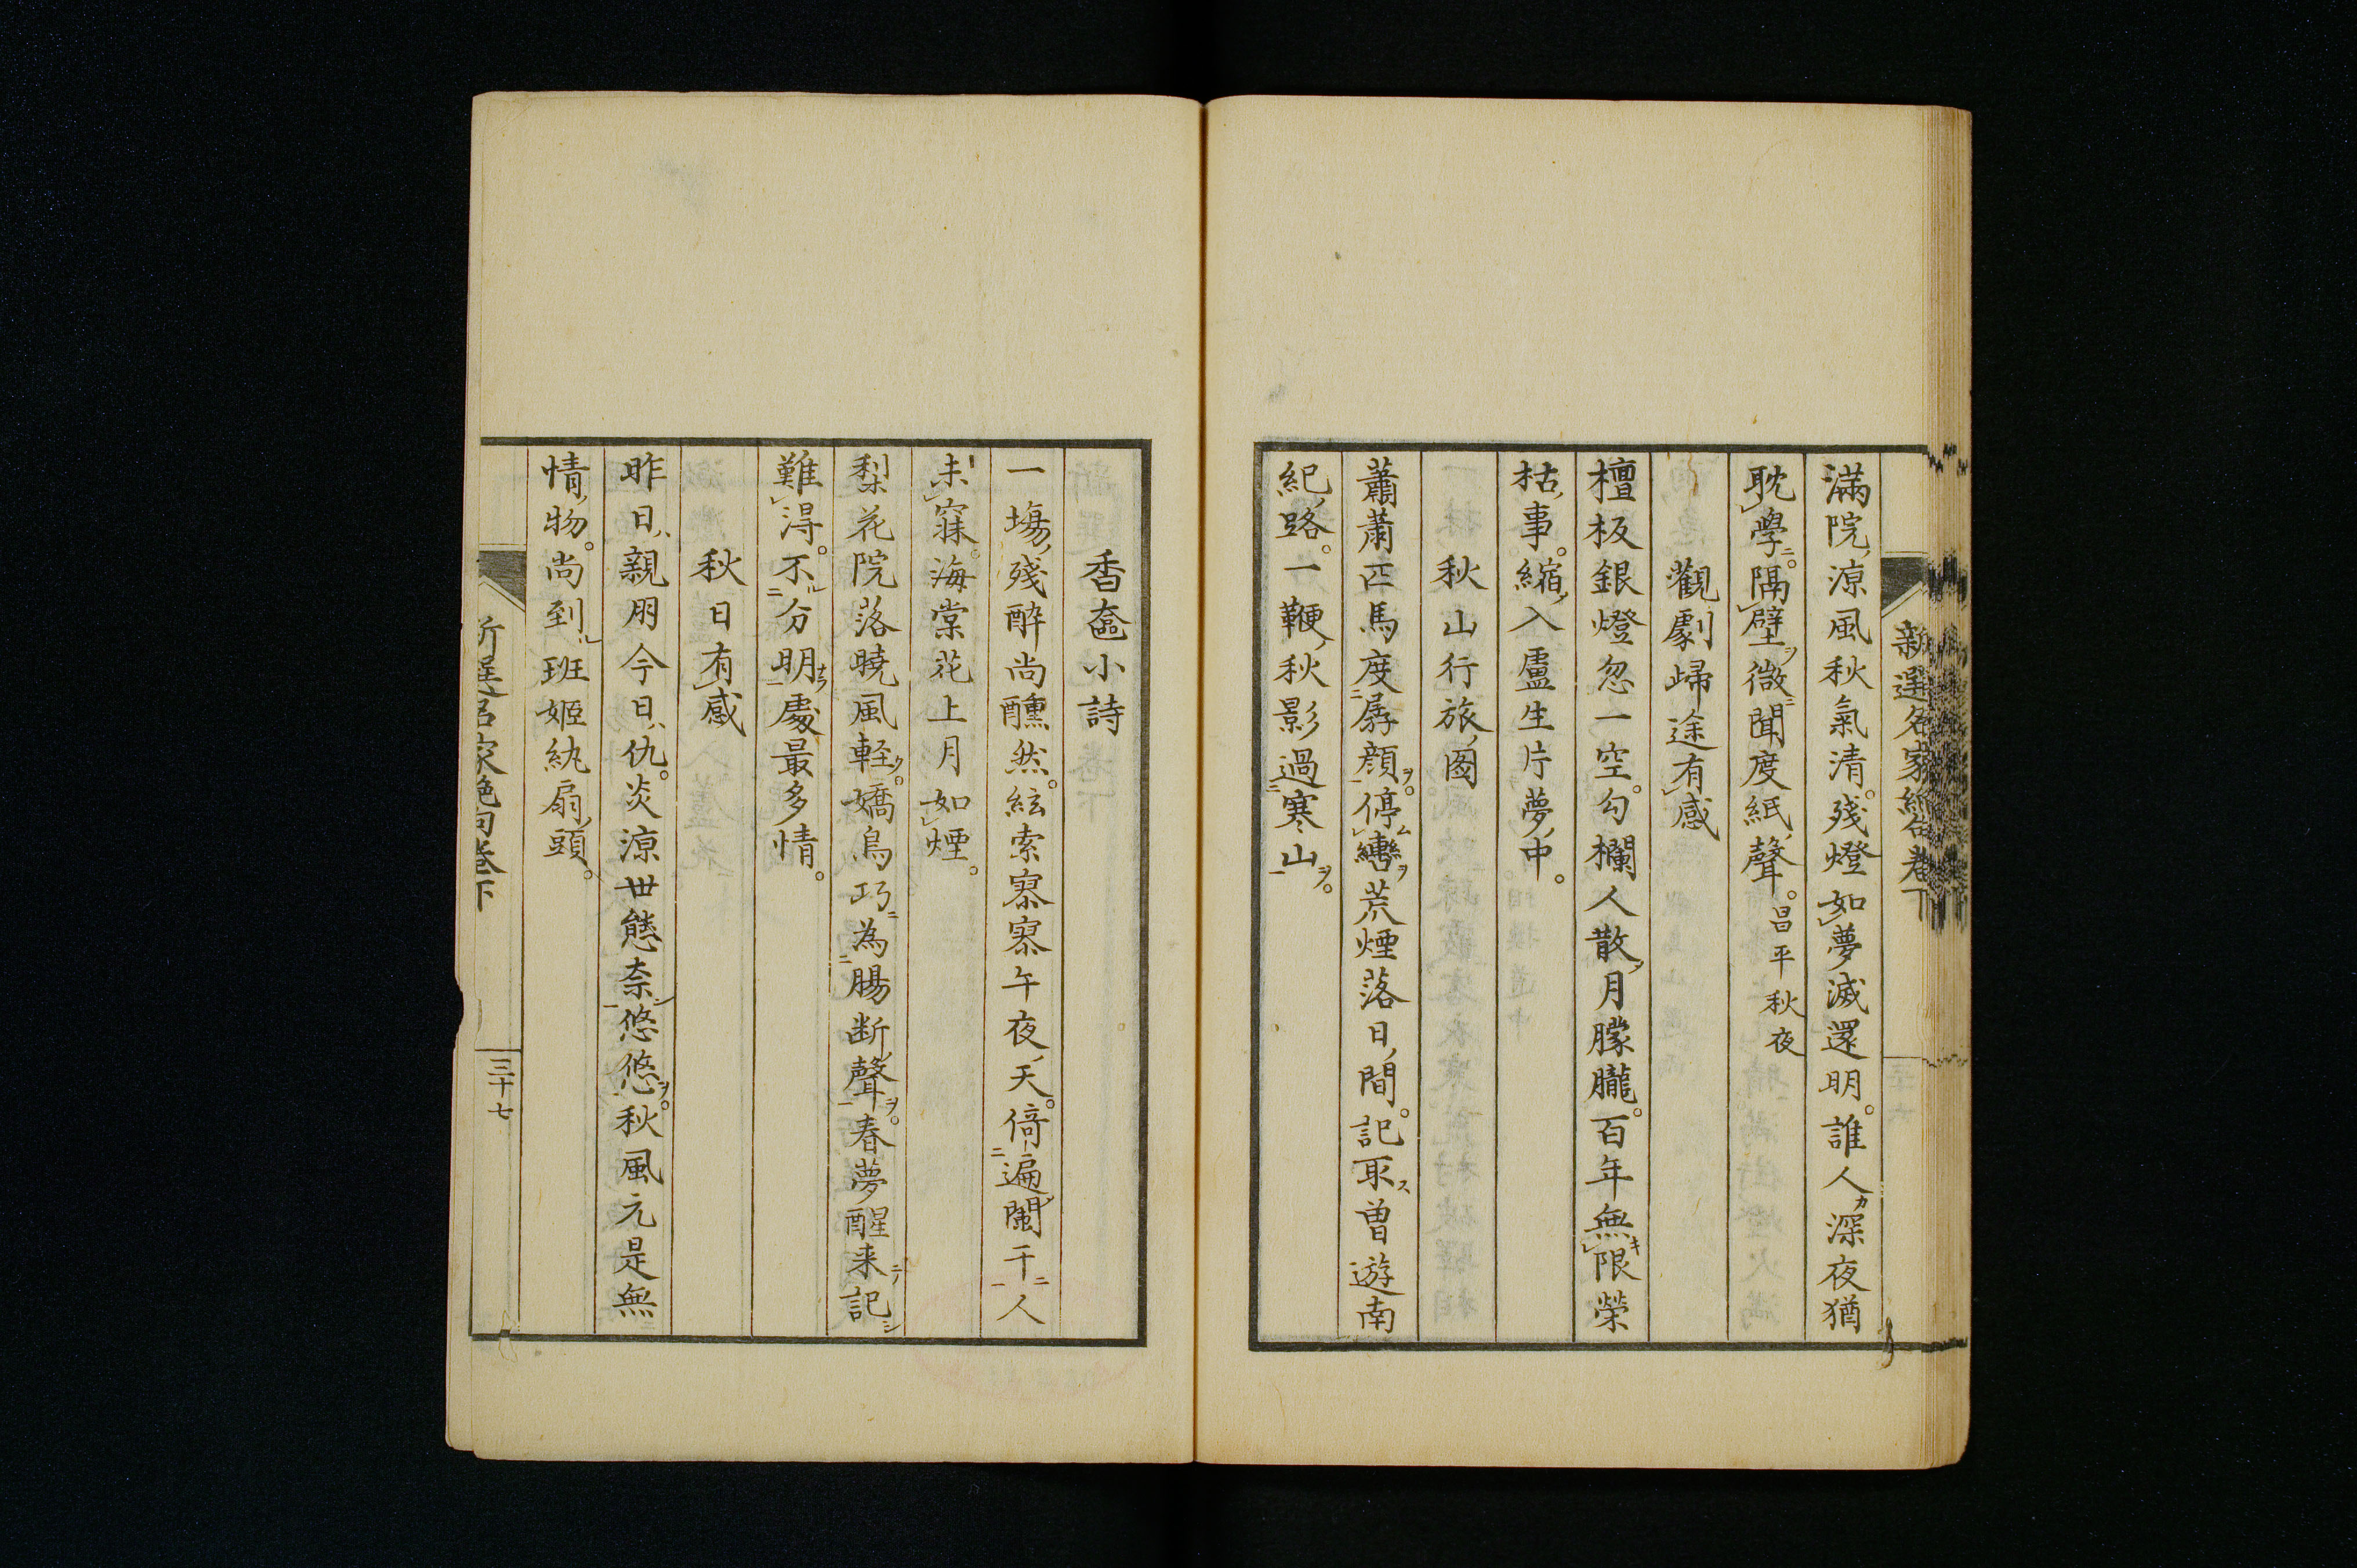 新選名家絶句卷下
滿院涼風秋氣清。殘燈如夢滅還明。誰人深夜猶
耽學。隔壁微聞度紙聲。昌平秋夜
觀劇歸途有感
檀板銀燈忽一空。勾欄人散月朦朧。百年無限榮
枯事。縮入盧生片夢中。
秋山行旅圖
蕭蕭匹馬度孱顔。停轡荒煙落日間。記取曽遊南
紀路。一鞭秋影過寒山。
香奩小詩
一塲殘酔尚醺然。絃索寥寥午夜天。倚遍闌干人
未寐。海棠花上月如煙。
梨花院落曉風軽。嬌鳥巧為腸断聲。春夢醒来記
難得。不分明處最多情。
秋日有感
昨日親朋今日仇。炎涼世態奈悠悠。秋風元是無
情物。尚到班姬紈扇頭。
新選名家絶句卷下
三十七